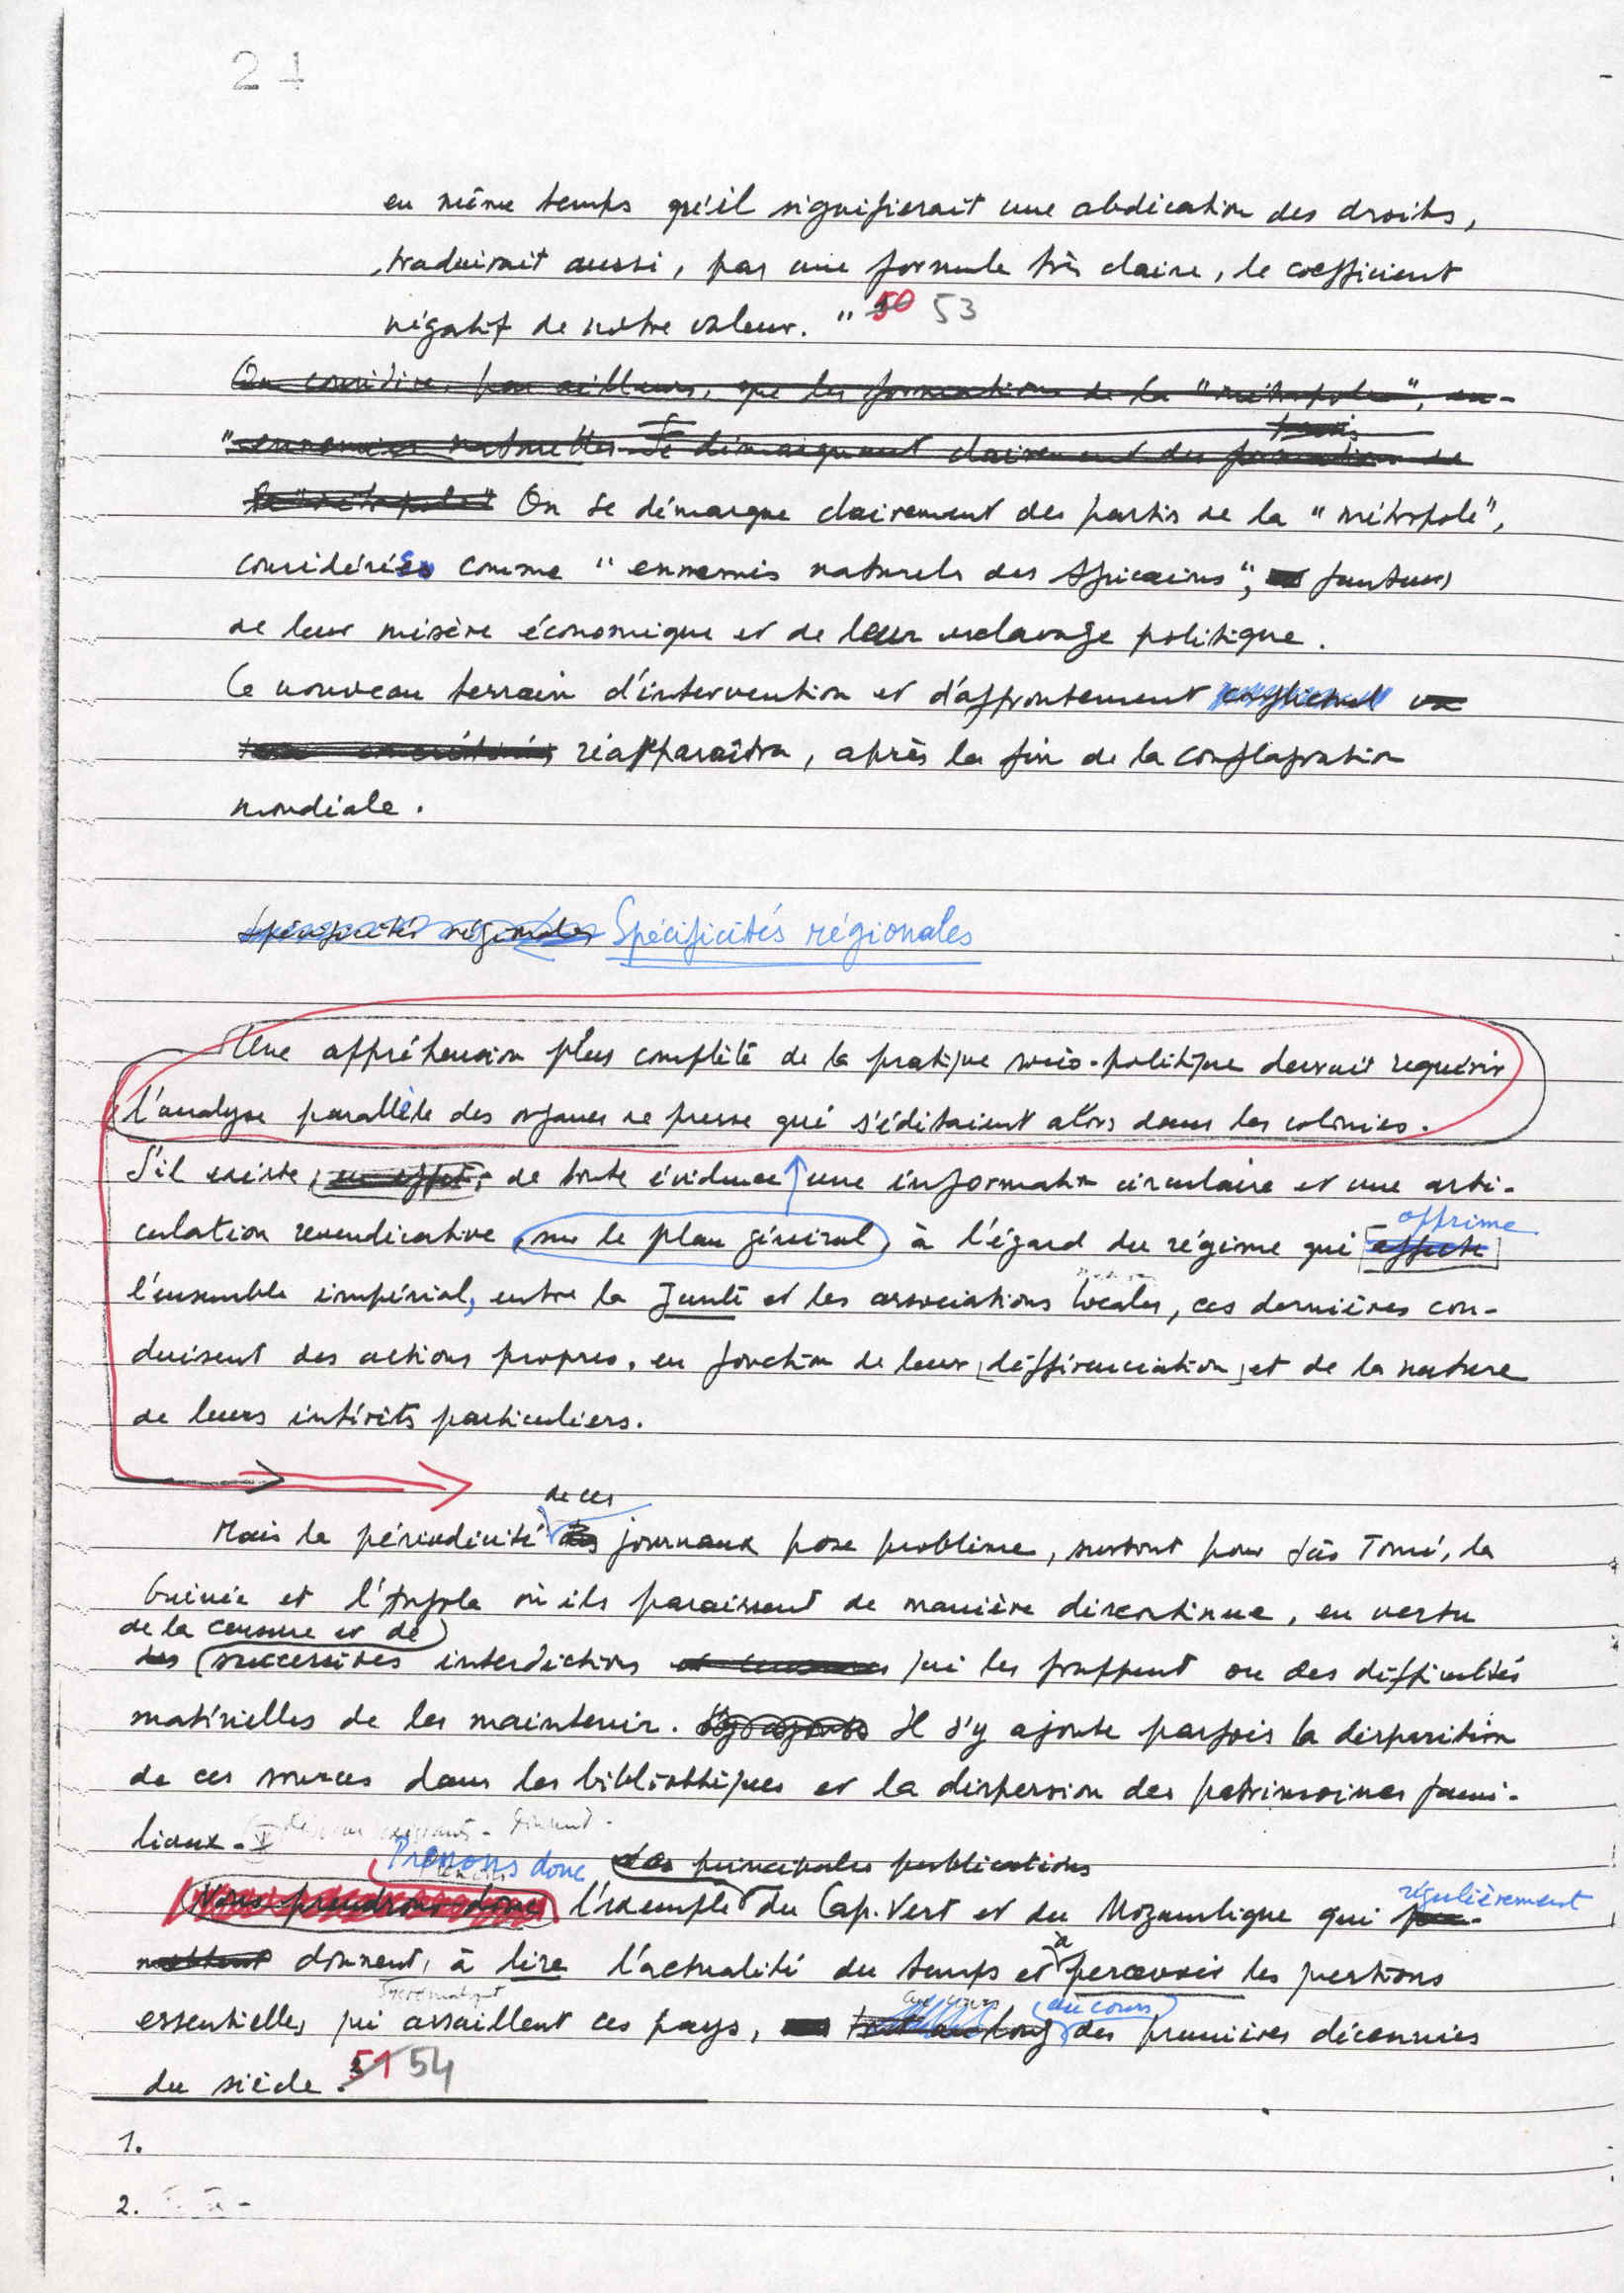 24
en même temps qu'il signifierait une abdication des droits,
traduirait aussi, par une formule très claire, le coefficient
négatif de notre valeur. " 50 53
On considère, par ailleurs, que les formations de la "métropole",
naturelles Se démarquant clairement des formations de
partis
la "métropole" On se démarque clairement des partis de la "métropole",
considérés comme "ennemis naturels des Africains", fauteurs
de leur misère économique et de leur esclavage politique.
Ce nouveau terrain d'intervention et d'affrontement conflictuel va
réapparaîtra, après la fin de la conflagration
mondiale.
Spécificités régionales Spécificités régionales
Une appréhension plus complète de la pratique socio-politique devrait requérir
l'analyse parallèle des organes de presse qui s'éditaient alors dans les colonies.
S'il existe, en effet, de toute évidence une information circulaire et une arti-
culation revendicative, sur le plan général, à l'égard du régime qui affecte
opprime
l'ensemble impérial, entre la Junte et les associations locales, ces dernières con-
duisent des actions propres, en fonction de leur différenciation et de la nature
de leurs intérêts particuliers.
de ces
Mais la périodicité des journaux pose problème, surtout pour São Tomé, la
Guinée et l'Angola où ils paraissent de manière discontinue, en vertu
de la censure et de
des successives interdictions et censures qui les frappent ou des difficultés
matérielles de les maintenir. S'y ajoute Il s'y ajoute parfois la disparition
de ces sources dans les bibliothèques et la dispersion des patrimoines fami-
liaux.
Prenons donc des principales publications
Nous prendrons donc l'exemple du Cap-Vert et du Mozambique qui
régulièrement
donnent, à lire l'actualité du temps et à percevoir les questions
essentielles qui assaillent ces pays, tout au long des premières décennies
au cours (au cours)
du siècle. 51 54
1.
2.